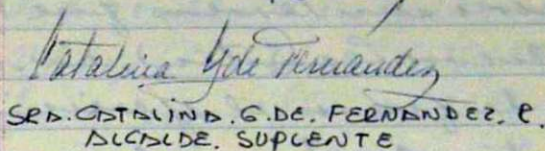 Catalina G de Fernández
SRA. CATALINA. G. DE. FERNANDEZ. P.
ALCALDE. SUPLENTE